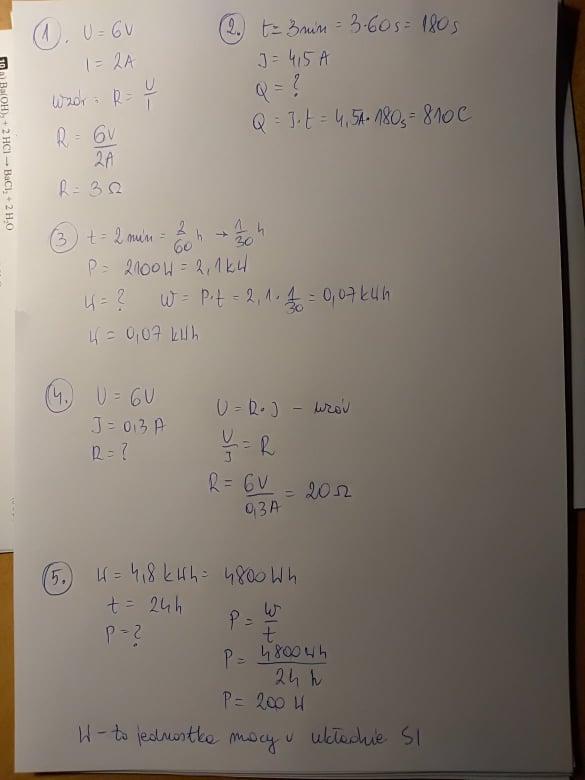 1. U = 6V
I = 2A
wzór: R = U/I
R = 6V/2A
R = 3 Ω
2. t = 3 min = 3·60s = 180s
J = 4,5 A
Q = ?
Q = J·t = 4,5A·180s = 810C
3 t = 2 min = 2/60 h → 1/30 h
P = 2100W = 2,1kW
W = ? W = P·t = 2,1·1/30 = 0,07kWh
W = 0,07 kWh
4. U = 6V
J = 0,3 A
R = ?
U = R·J – wzór
U/J = R
R = 6V/0,3A = 20Ω
5. W = 4,8 kWh = 4800Wh
t = 24h
P = ?
P = W/t
P = 4800Wh/24 h
P = 200 W
W – to jednostka mocy w układzie SI
10 a) Ba(OH)₂ + 2 HCl → BaCl₂ + 2 H₂O